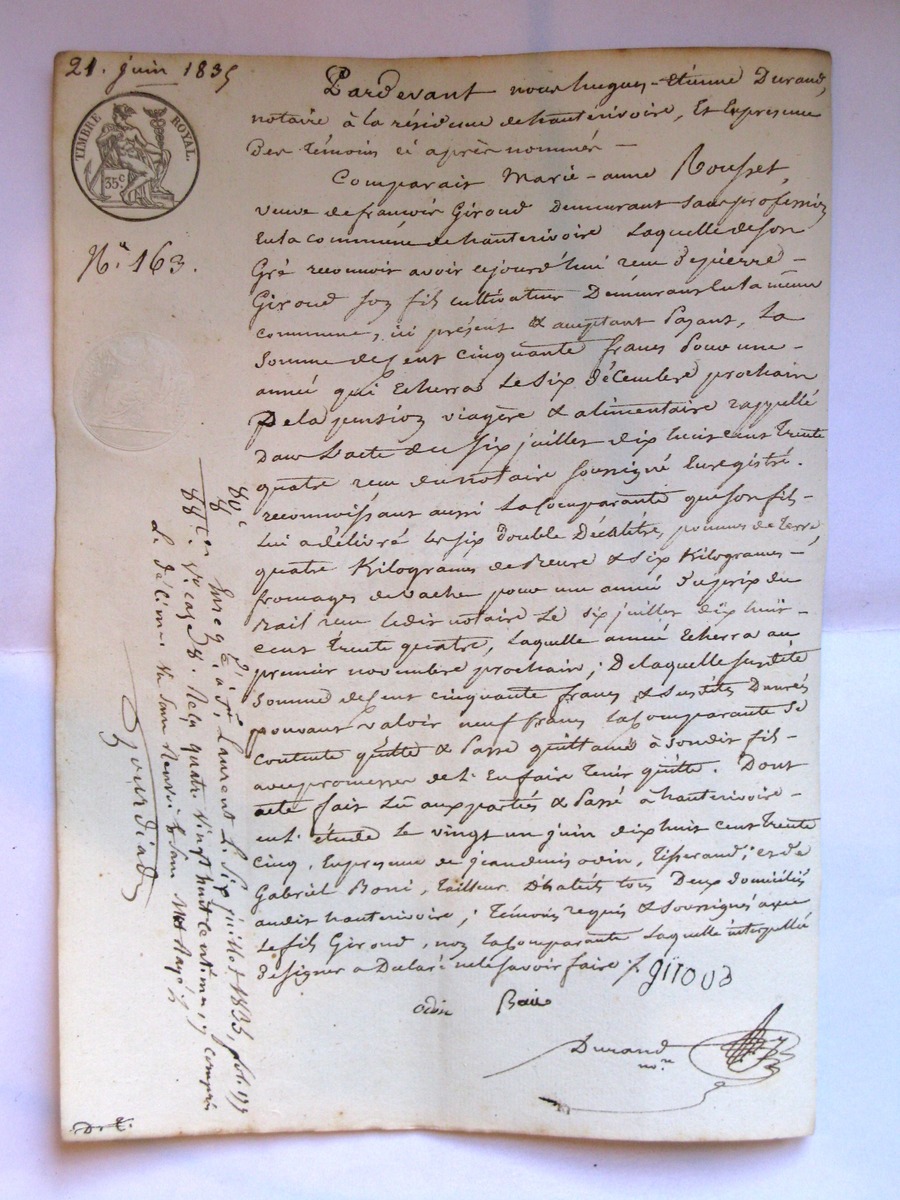 21. juin 1835
TIMBRE ROYAL.
35 c.
N.º 163.
Pardevant nous hugues-Etienne Durand,
notaire à la résidence de hauterivoire, Et En presence
Des témoins ci après nommés —
Comparait Marie-anne Rousset,
veuve de françois Giroud Demeurant sans profession
En la commune de hauterivoire Laquelle de son
Gré reconnoit avoir cejourd'hui reçu De pierre
Giroud son fils cultivateur Demeurant En la même
commune, ici présent & aceptant Payant, La
Somme de Cent cinquante francs Pour une
année qui Echerra Le Six décembre prochain
De la pension viagère & alimentaire rappellé
Dans L'acte du Six juillet dix huit cent trente
quatre reçu du notaire Soussigné Enregistré.
reconnoissant aussi La Comparante que Son fils
Lui a délivré les six double Décalitres pommes de terre
quatre Kilogrames de Beure & Six Kilogrames
fromages de vache pour une année Du prix du
Bail reçu ledit notaire Le Six juillet dix huit
cent trente quatre, Laquelle année Echerra au
premier novembre prochain; De laquelle Susdite
Somme de Cent cinquante francs, & Susdites Denrés
pouvant valoir neuf francs La Comparante Se
Contente quitte & Passe quittance à Son dit fils
avec promesse de L'En faire tenir quitte. Dont
acte fait Lû aux parties & Passé à hauterivoire
En L'étude Le vingt un juin dix huit cent trente
cinq, En presence de jean denis odin, Tisserand; et de
Gabriel Boni, tailleur D'habits tous Deux domiciliés
audit hauterivoire; témoins requis & Soussignés avec
Le fils Giroud, non La Comparante Laquelle interpellée
de signer a Déclaré ne le Savoir faire
giroud
odin
Durand
no.re
80 c
8
88 c
Enreg.é à S.t Laurent Le Six juillet 1835, fol. 177
V.º case 8. Reçu quatre vingt huit centimes y compris
Le décime
Gourdiad
D. E.